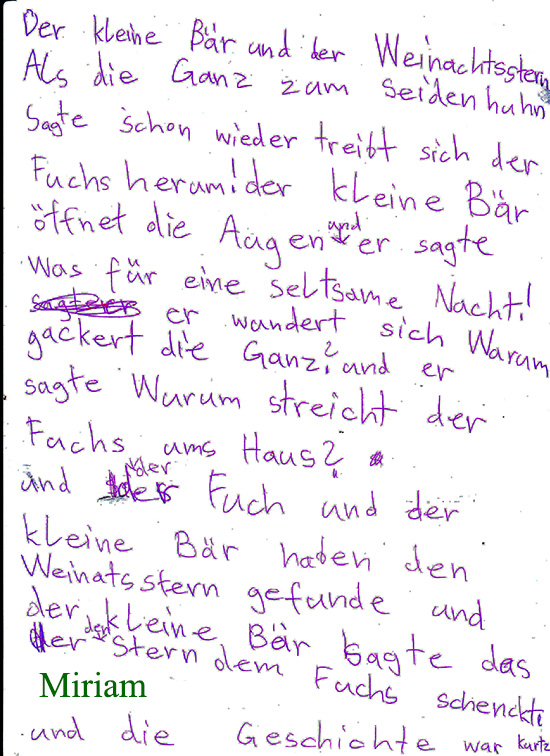 Der kleine Bär und der Weinachtsstern
Als die Ganz zum Seidenhuhn
Sagte schon wieder treibt sich der
Fuchs herum! der kleine Bär
öffnet die Augen und er sagte
Was für eine seltsame Nacht!
er wundert sich Warum
gackert die Ganz? und er
sagte Warum streicht der
Fuchs ums Haus?
und der Fuch und der
kleine Bär haben den
Weinatsstern gefunde und
der kleine Bär sagte das
der den Stern dem Fuchs schenckte
Miriam
und die Geschichte war kurtz